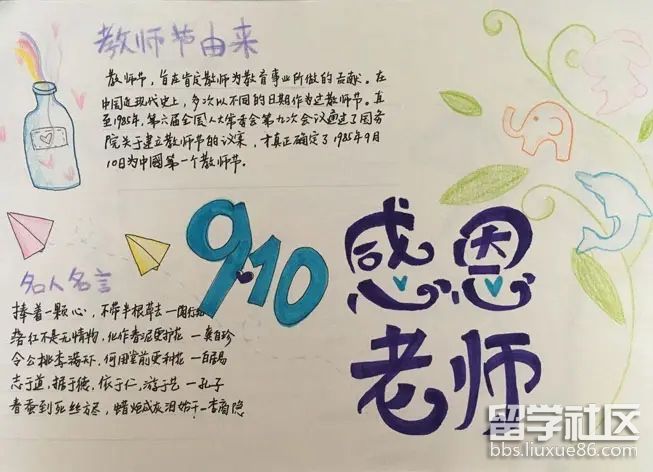 教师节由来
教师节，旨在肯定教师为教育事业所做的贡献。在
中国近现代史上，多次以不同的日期作为过教师节。直
至1985年，第六届全国人大常委会第九次会议通过了国务
院关于建立教师节的议案，才真正确定了1985年9月
10日为中國第一个教师节。
9.10
感恩
老师
名人名言
捧着一颗心，不带半根草去—陶行知
落红不是无情物，化作春泥更护花—龚自珍
令公桃李满天下，何用堂前更种花—白居易
志于道，据于德，依于仁，游于艺—孔子
春蚕到死丝方尽，蜡炬成灰泪始干—李商隐
留学社区
bbs.liuxue86.com